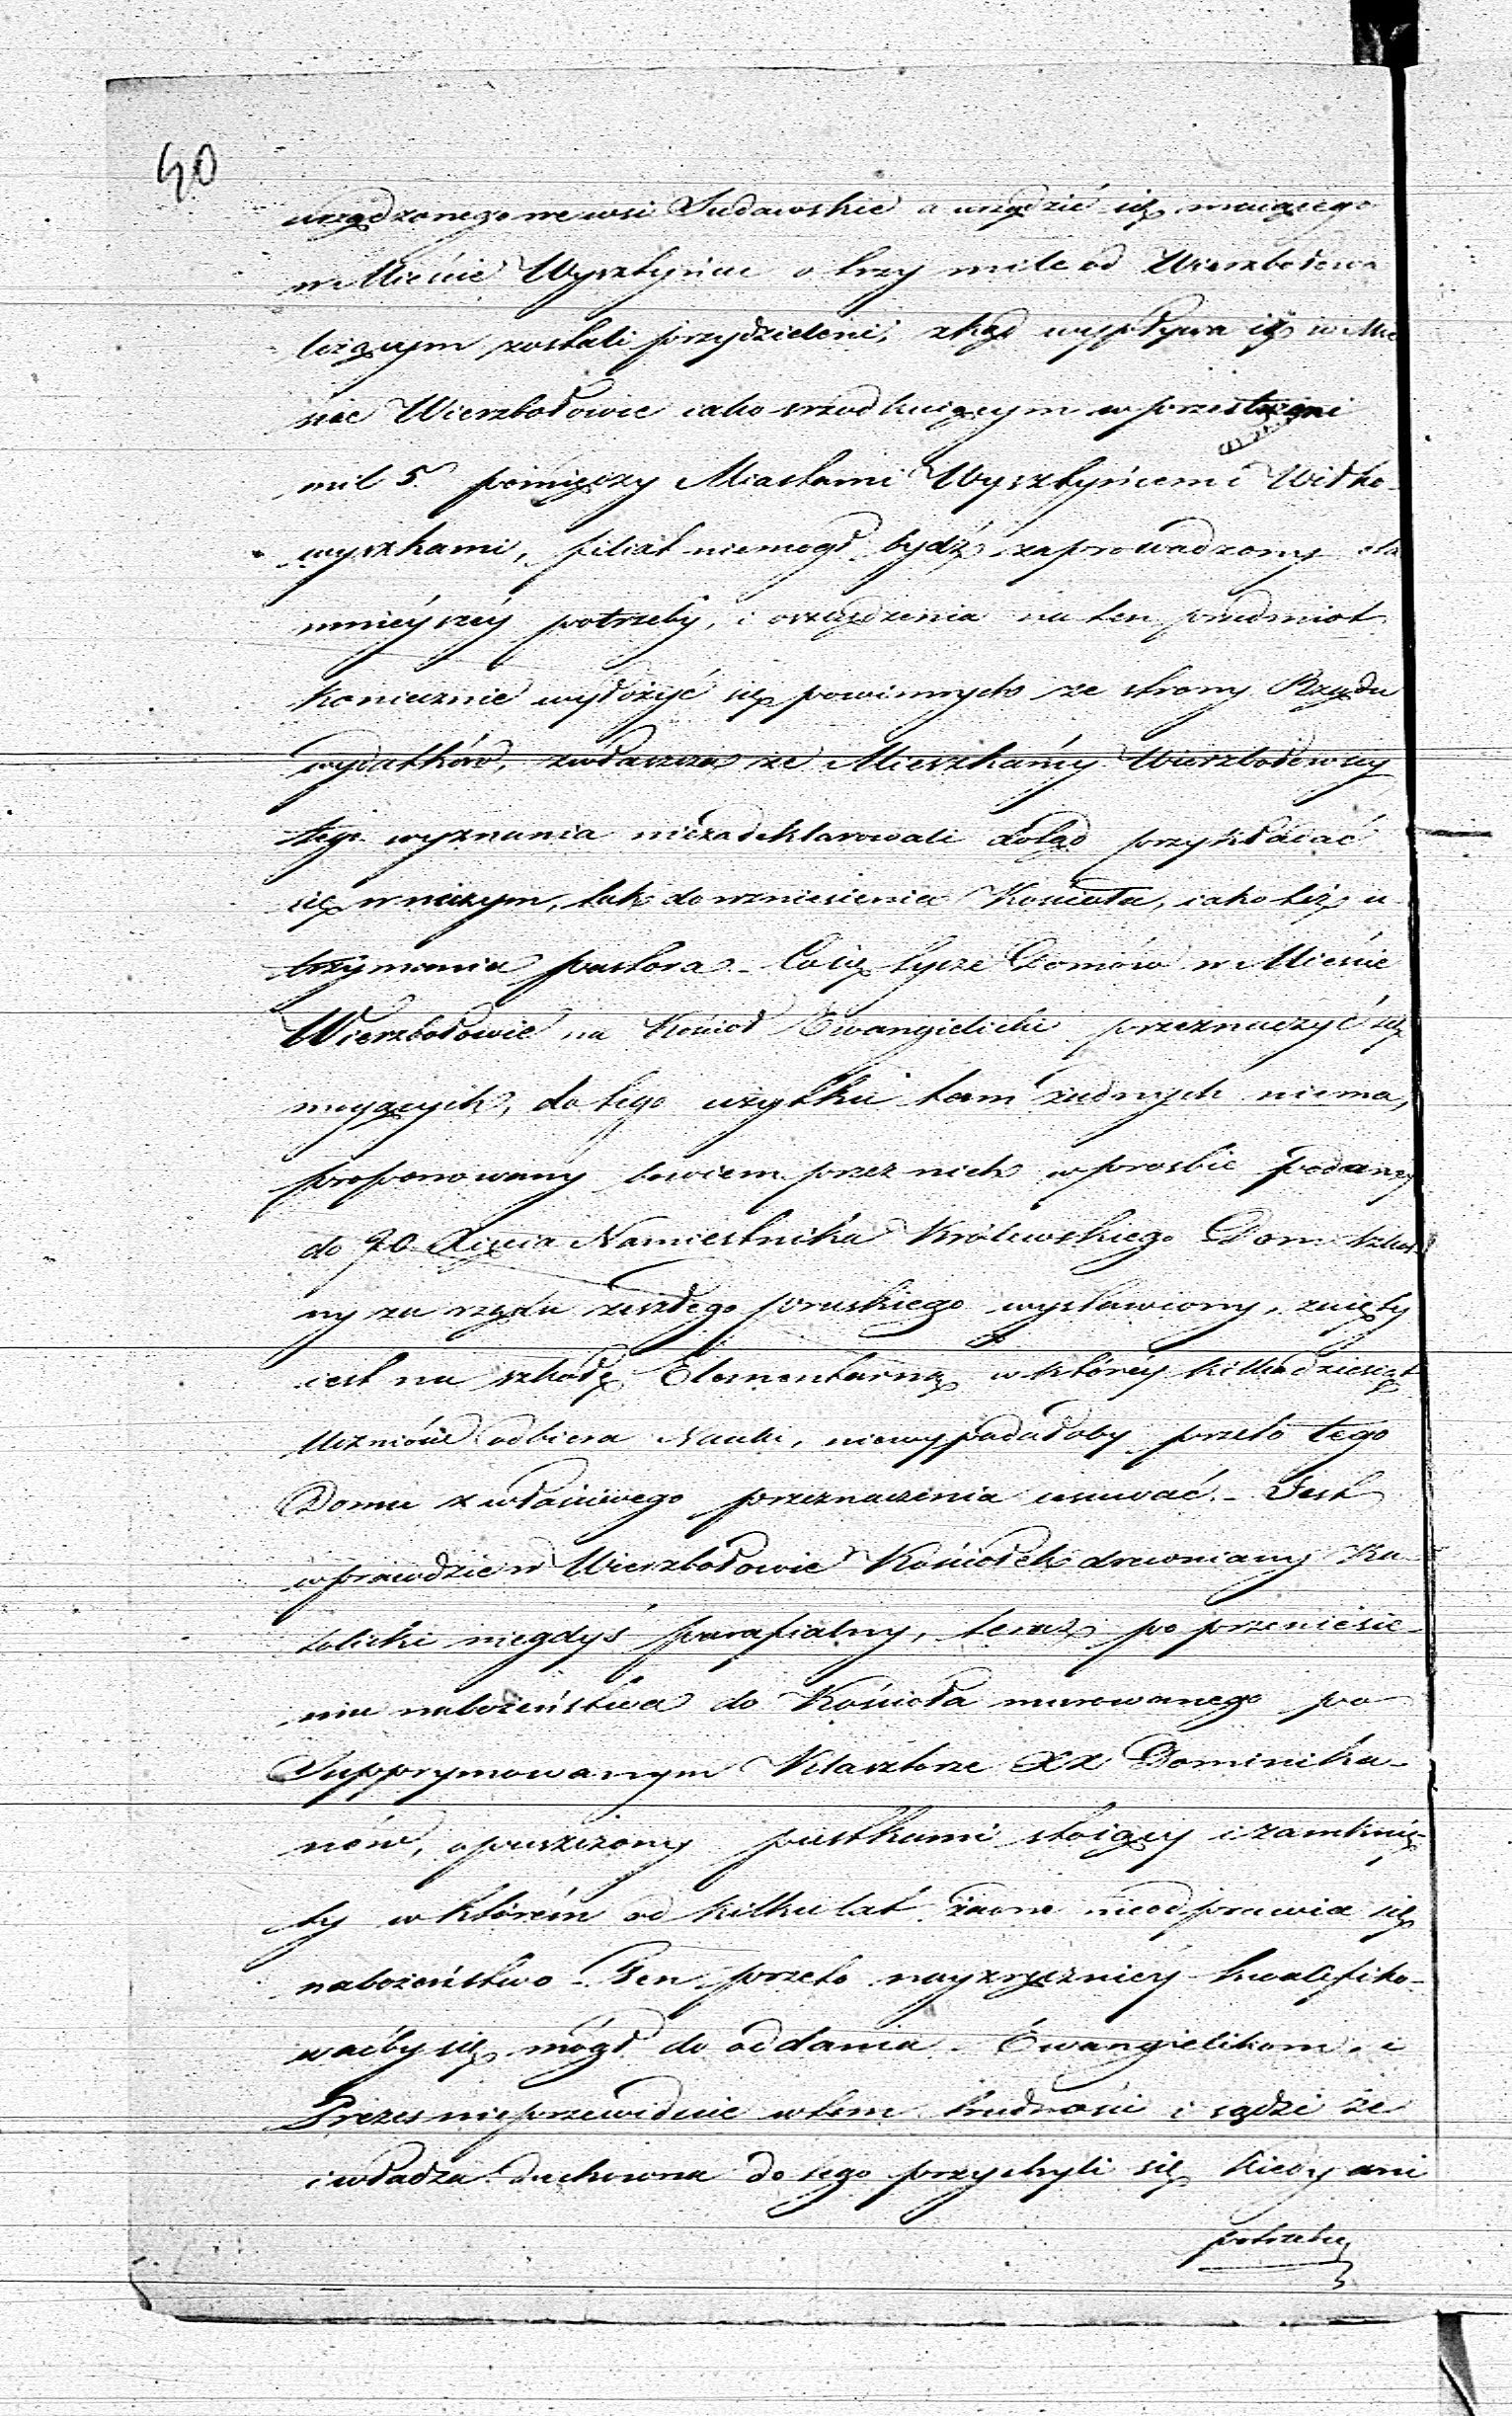 40
urządzonego we wsi Sudawskie a urządzić się maiącego
w Mieście Wysztyńcu o trzy mile od Wierzbołowa
leżącym zostali przydzieleni, zkąd wypływa iż w Mie
ście Wierzbołowie iako srzodkuiącym w przestrzeni
mil 5 pomiędzy Miastami Wysztyńcem i Wiłko-
wyszkami, filiał niemogł bydź zaprowadzony dla
mnieyszéy potrzeby, i oszczędzenia na ten przedmiot
koniecznie wyłożyć się powinnych ze strony Rządu
wydatków, zwłaszcza że Mieszkańcy Wierzbołowscy
tego wyznania niezadeklarowali dotąd przykładać
się w niczym, tak do wzniesienia Kościoła, iako też u-
trzymania pastora. Co się tycze Domów w Mieście
Wierzbołowie na Kościoł Ewangielicki przeznaczyć się
mogących, do tego użytku tam żadnych niema,
proponowany bowiem przez nich w prosbie podaney
do JO. Xięcia Namiestnika Królewskiego Dom
ny za rządu zeszłego pruskiego wystawiony, zaięty
iest na szkołę Elementarną w któréy kilkadziesiąt
Uczniów odbiera Nauki, niewypadałoby przeto tego
Domu z właściwego przeznaczenia usuwać. - Jest
wprawdzie w Wierzbołowie Kościołek drewniany Ka-
tolicki niegdyś parafialny, teraz po przeniesie-
niu nabożeństwa do Kościoła murowanego po
Supprymowanym Klasztorze XX Dominika-
nów, opuszczony pustkami stoiący i zamknię-
ty w którém od kilku lat żadne nieodprawia się
nabożeństwo - Ten przeto nayzręczniéy kwalifiko-
waćby się mógł do oddania Ewangielikom, i
Prezes nieprzewiduie w tem trudności i sądzi że
i władza duchowna do tego przychyli się kiedy ani
potrzeby